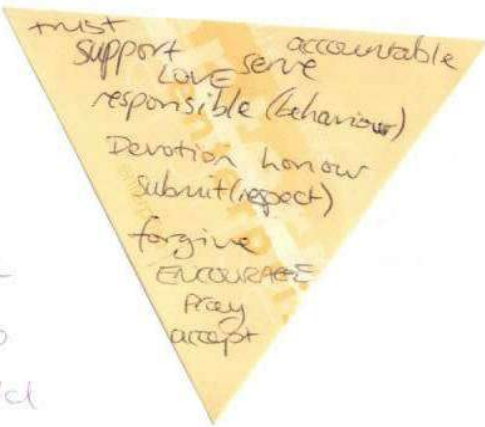 trust
support accountable
LOVE serve
responsible (behaviour)
Devotion honour
submit (respect)
forgive
ENCOURAGE
Pray
accept